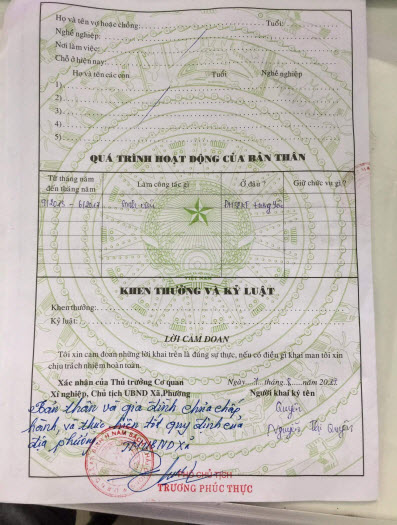 Họ và tên vợ hoặc chồng: Tuổi:
Nghề nghiệp:
Nơi làm việc:
Chỗ ở hiện nay:
Họ và tên các con Tuổi Nghề nghiệp
1)
2)
3)
4)
5)
QUÁ TRÌNH HOẠT ĐỘNG CỦA BẢN THÂN
Từ tháng năm đến tháng năm Làm công tác gì Ở đâu ? Giữ chức vụ gì ?
VIỆT NAM
KHEN THƯỞNG VÀ KỶ LUẬT
Khen thưởng:
Kỷ luật:
LỜI CAM ĐOAN
Tôi xin cam đoan những lời khai trên là đúng sự thực, nếu có điều gì khai man tôi xin
chịu trách nhiệm hoàn toàn.
Xác nhận của Thủ trưởng Cơ quan
Xí nghiệp, Chủ tịch UBND Xã,Phường
Ngày tháng năm
Người khai ký tên
Bản thân và gia đình chấp
hành, và thực hiện tốt quy định của
địa phương
TM UBND xã
Quyên
Nguyễn Thị Quyên
PHÓ CHỦ TỊCH
TRƯƠNG PHÚC THỰC